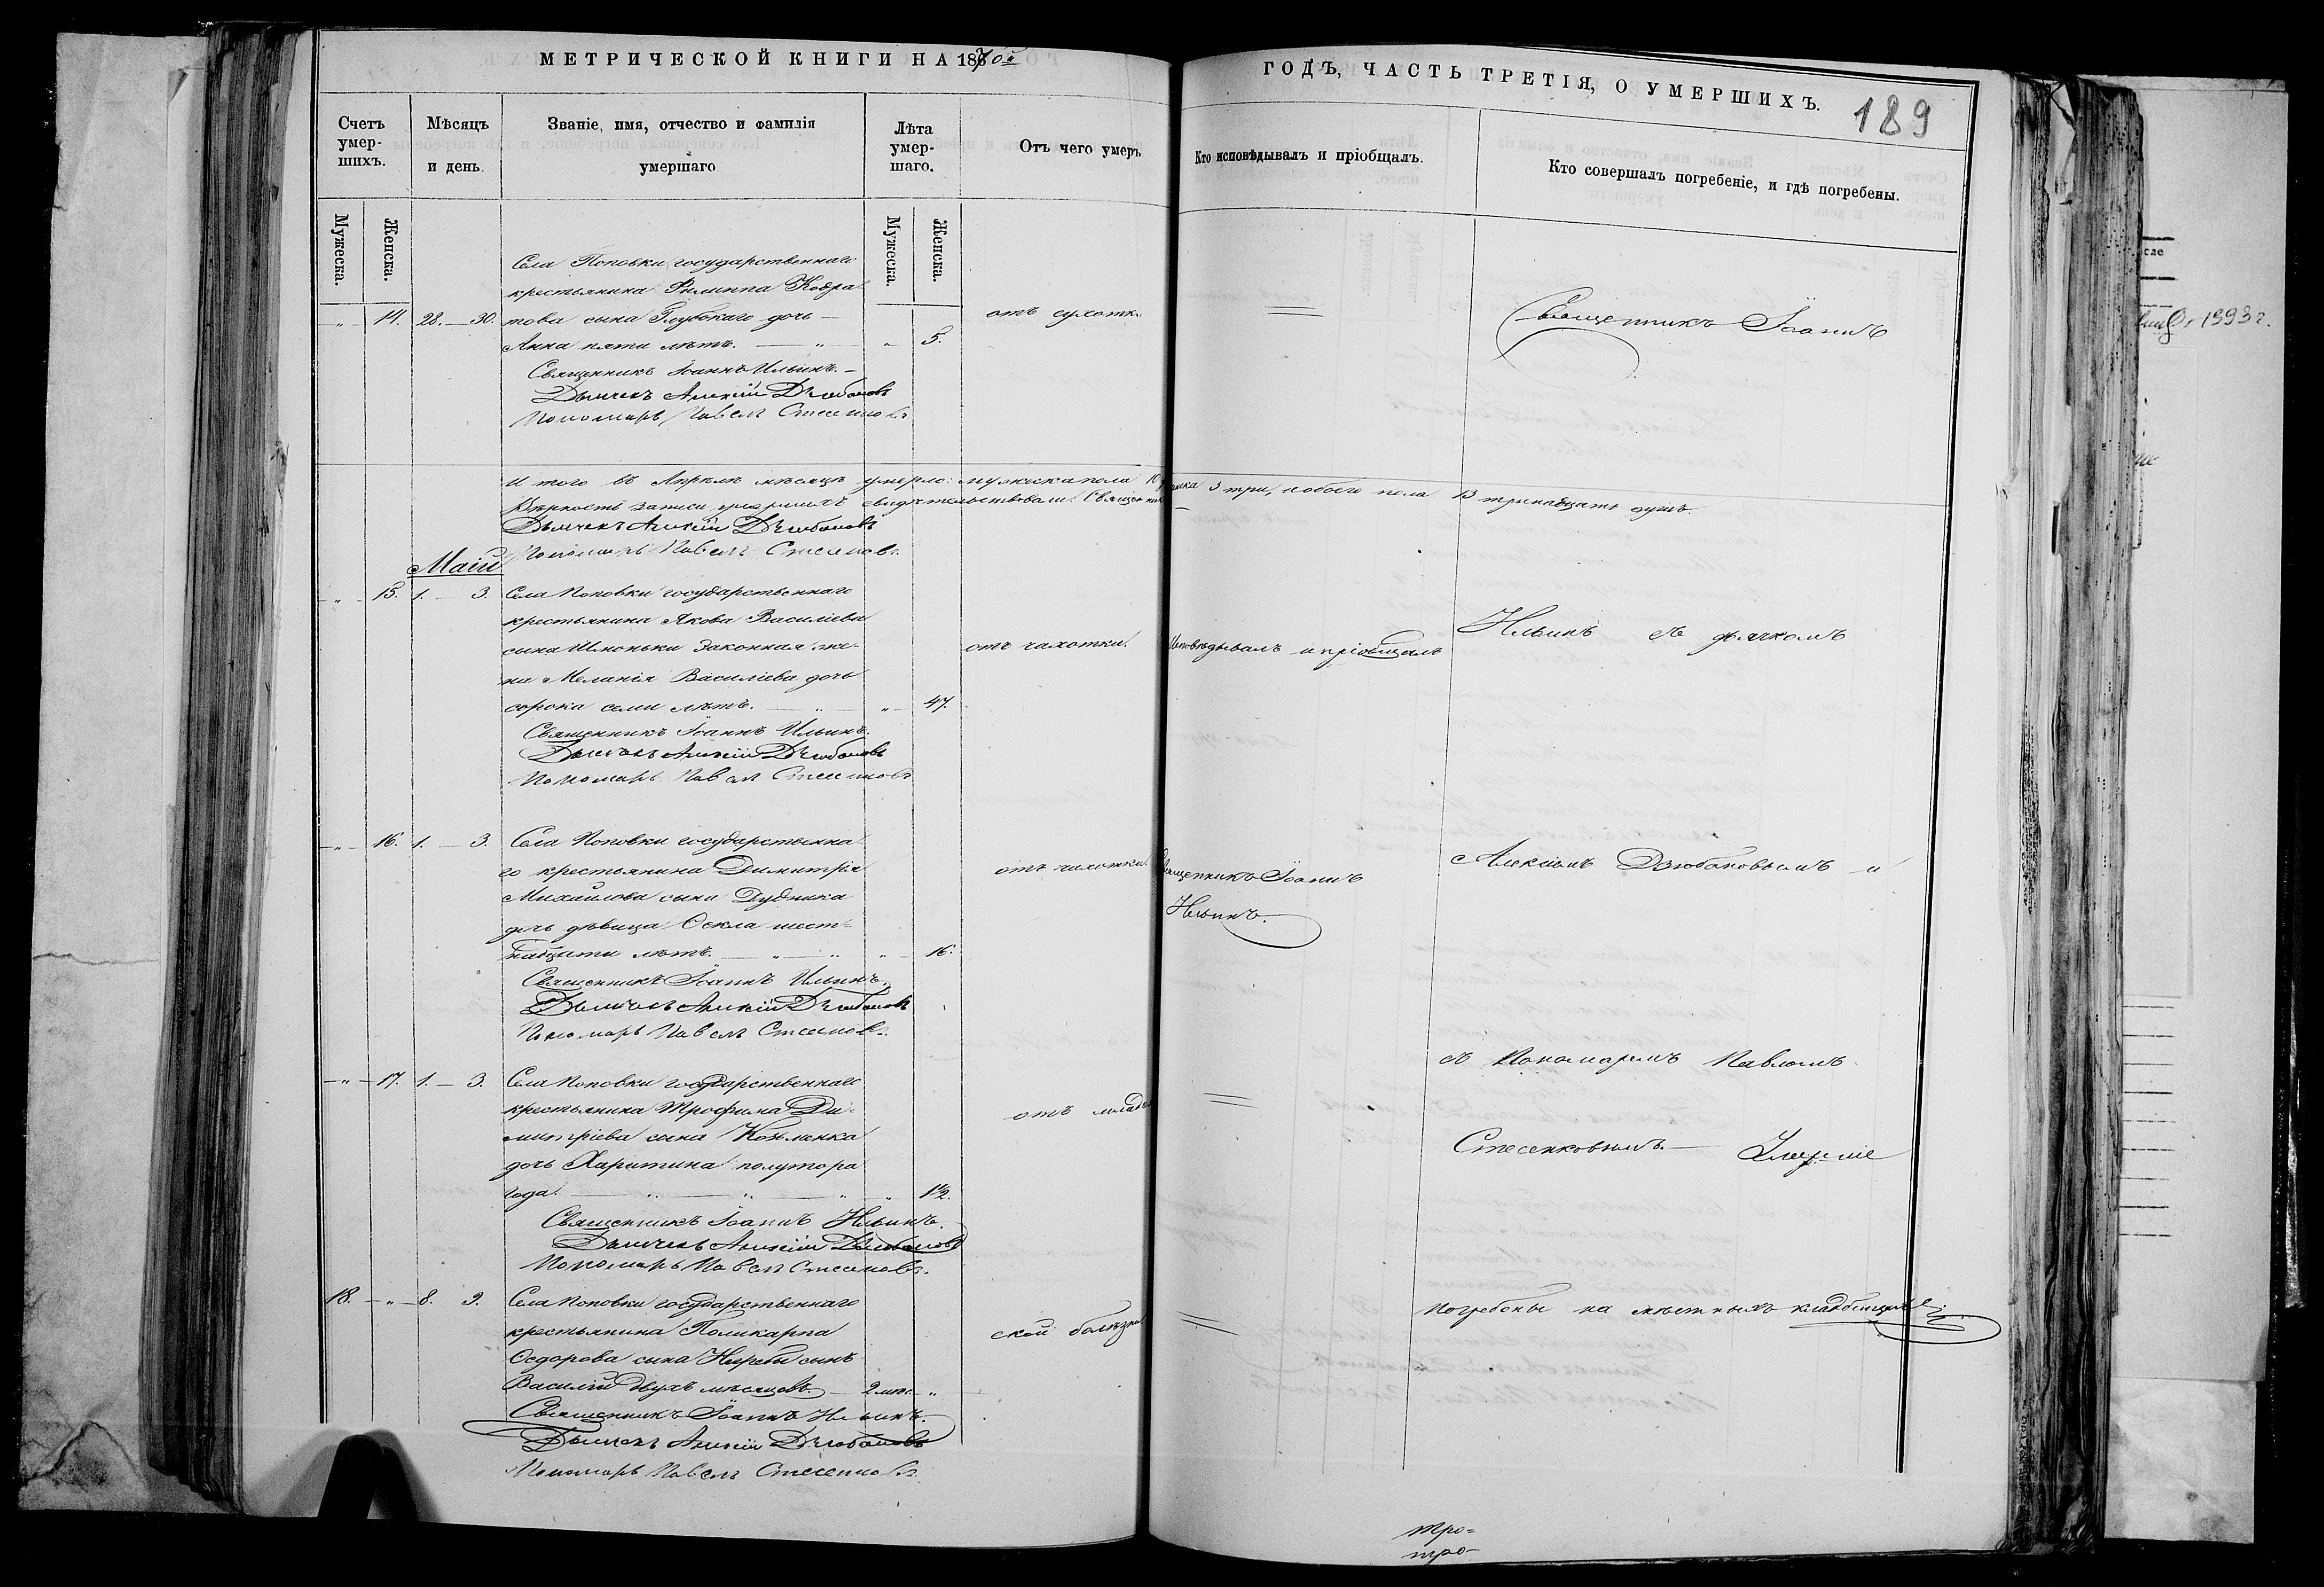 МЕТРИЧЕСКОЙ КНИГИ НА 1870й
ГОДЪ, ЧАСТЬ ТРЕТІЯ, О УМЕРШИХЪ.
189
Счетъ умер-шихъ.
Мѣсяцъ и день
Званіе, имя, отчество и фамилія умершаго
Лѣта умер-шаго.
Отъ чего умеръ
Кто исповѣдывалъ и пріобщалъ.
Кто совершалъ погребеніе, и гдѣ погребены.
Мужеска.
Женска.
Мужеска.
Женска.
Села Поповки государственнаго
крестьянина Филиппа Кодра
14. 28. — 30. това сына Глубокаго дочь — отъ сухотки
Анна пяти лѣтъ. — " — " 5.
Священникъ Іоаннъ Ильинъ. —
Дьячекъ Алексій Дзюбановъ
Пономарь Павелъ
Священникъ Іоаннъ
И того въ Апрѣлѣ мѣсяцѣ умерло: мужеска пола 10 3 три, обоего пола 13 тринадцать душъ.
Вѣрность записи умершихъ свидѣтельствовали: Священникъ
Дьячекъ Алексій Дзюбановъ
Пономарь Павелъ
Маій
" 15. 1. — 3. Села Поповки государственнаго
крестьянина Якова Василіева
сына законная же-
на Меланія Василіева дочь
сорока семи лѣтъ. — " — " 47.
отъ чахотки.
Исповѣдывалъ и пріобщалъ
Ильинъ съ дьячкомъ
Священникъ Іоаннъ Ильинъ.
Дьячекъ Алексій Дзюбановъ
Пономарь Павелъ
" 16. 1. — 3. Села Поповки государственна
го крестьянина Димитрія
Михайлова сына Дудника
дочь дѣвица Ѳекла шест-
надцати лѣтъ. — " — " " 16.
отъ чахотки.
Священникъ Іоаннъ
Ильинъ.
Алексіемъ Дзюбановымъ и
Священникъ Іоаннъ Ильинъ.
Дьячекъ Алексій Дзюбановъ
Пономарь Павелъ
съ Пономаремъ Павломъ
— " — 17. 1. — 3. Села Поповки государственнаго
крестьянина Трофима Ди-
митріева сына
дочь Харитина полутора
года. — " — " — " " 1½.
отъ младен
Священникъ Іоаннъ Ильинъ.
Дьячекъ Алексій Дзюбановъ
Пономарь Павелъ
18. — " — 8. 9. Села Поповки государственнаго
крестьянина Поликарпа
Ѳедорова сына сынъ
Василій двухъ мѣсяцевъ. — 2 мѣс. "
ской болѣзни
погребены на мѣстныхъ кладбищахъ
Священникъ Іоаннъ Ильинъ.
Дьячекъ Алексій Дзюбановъ
Пономарь Павелъ
тро-
тро-
1993г.